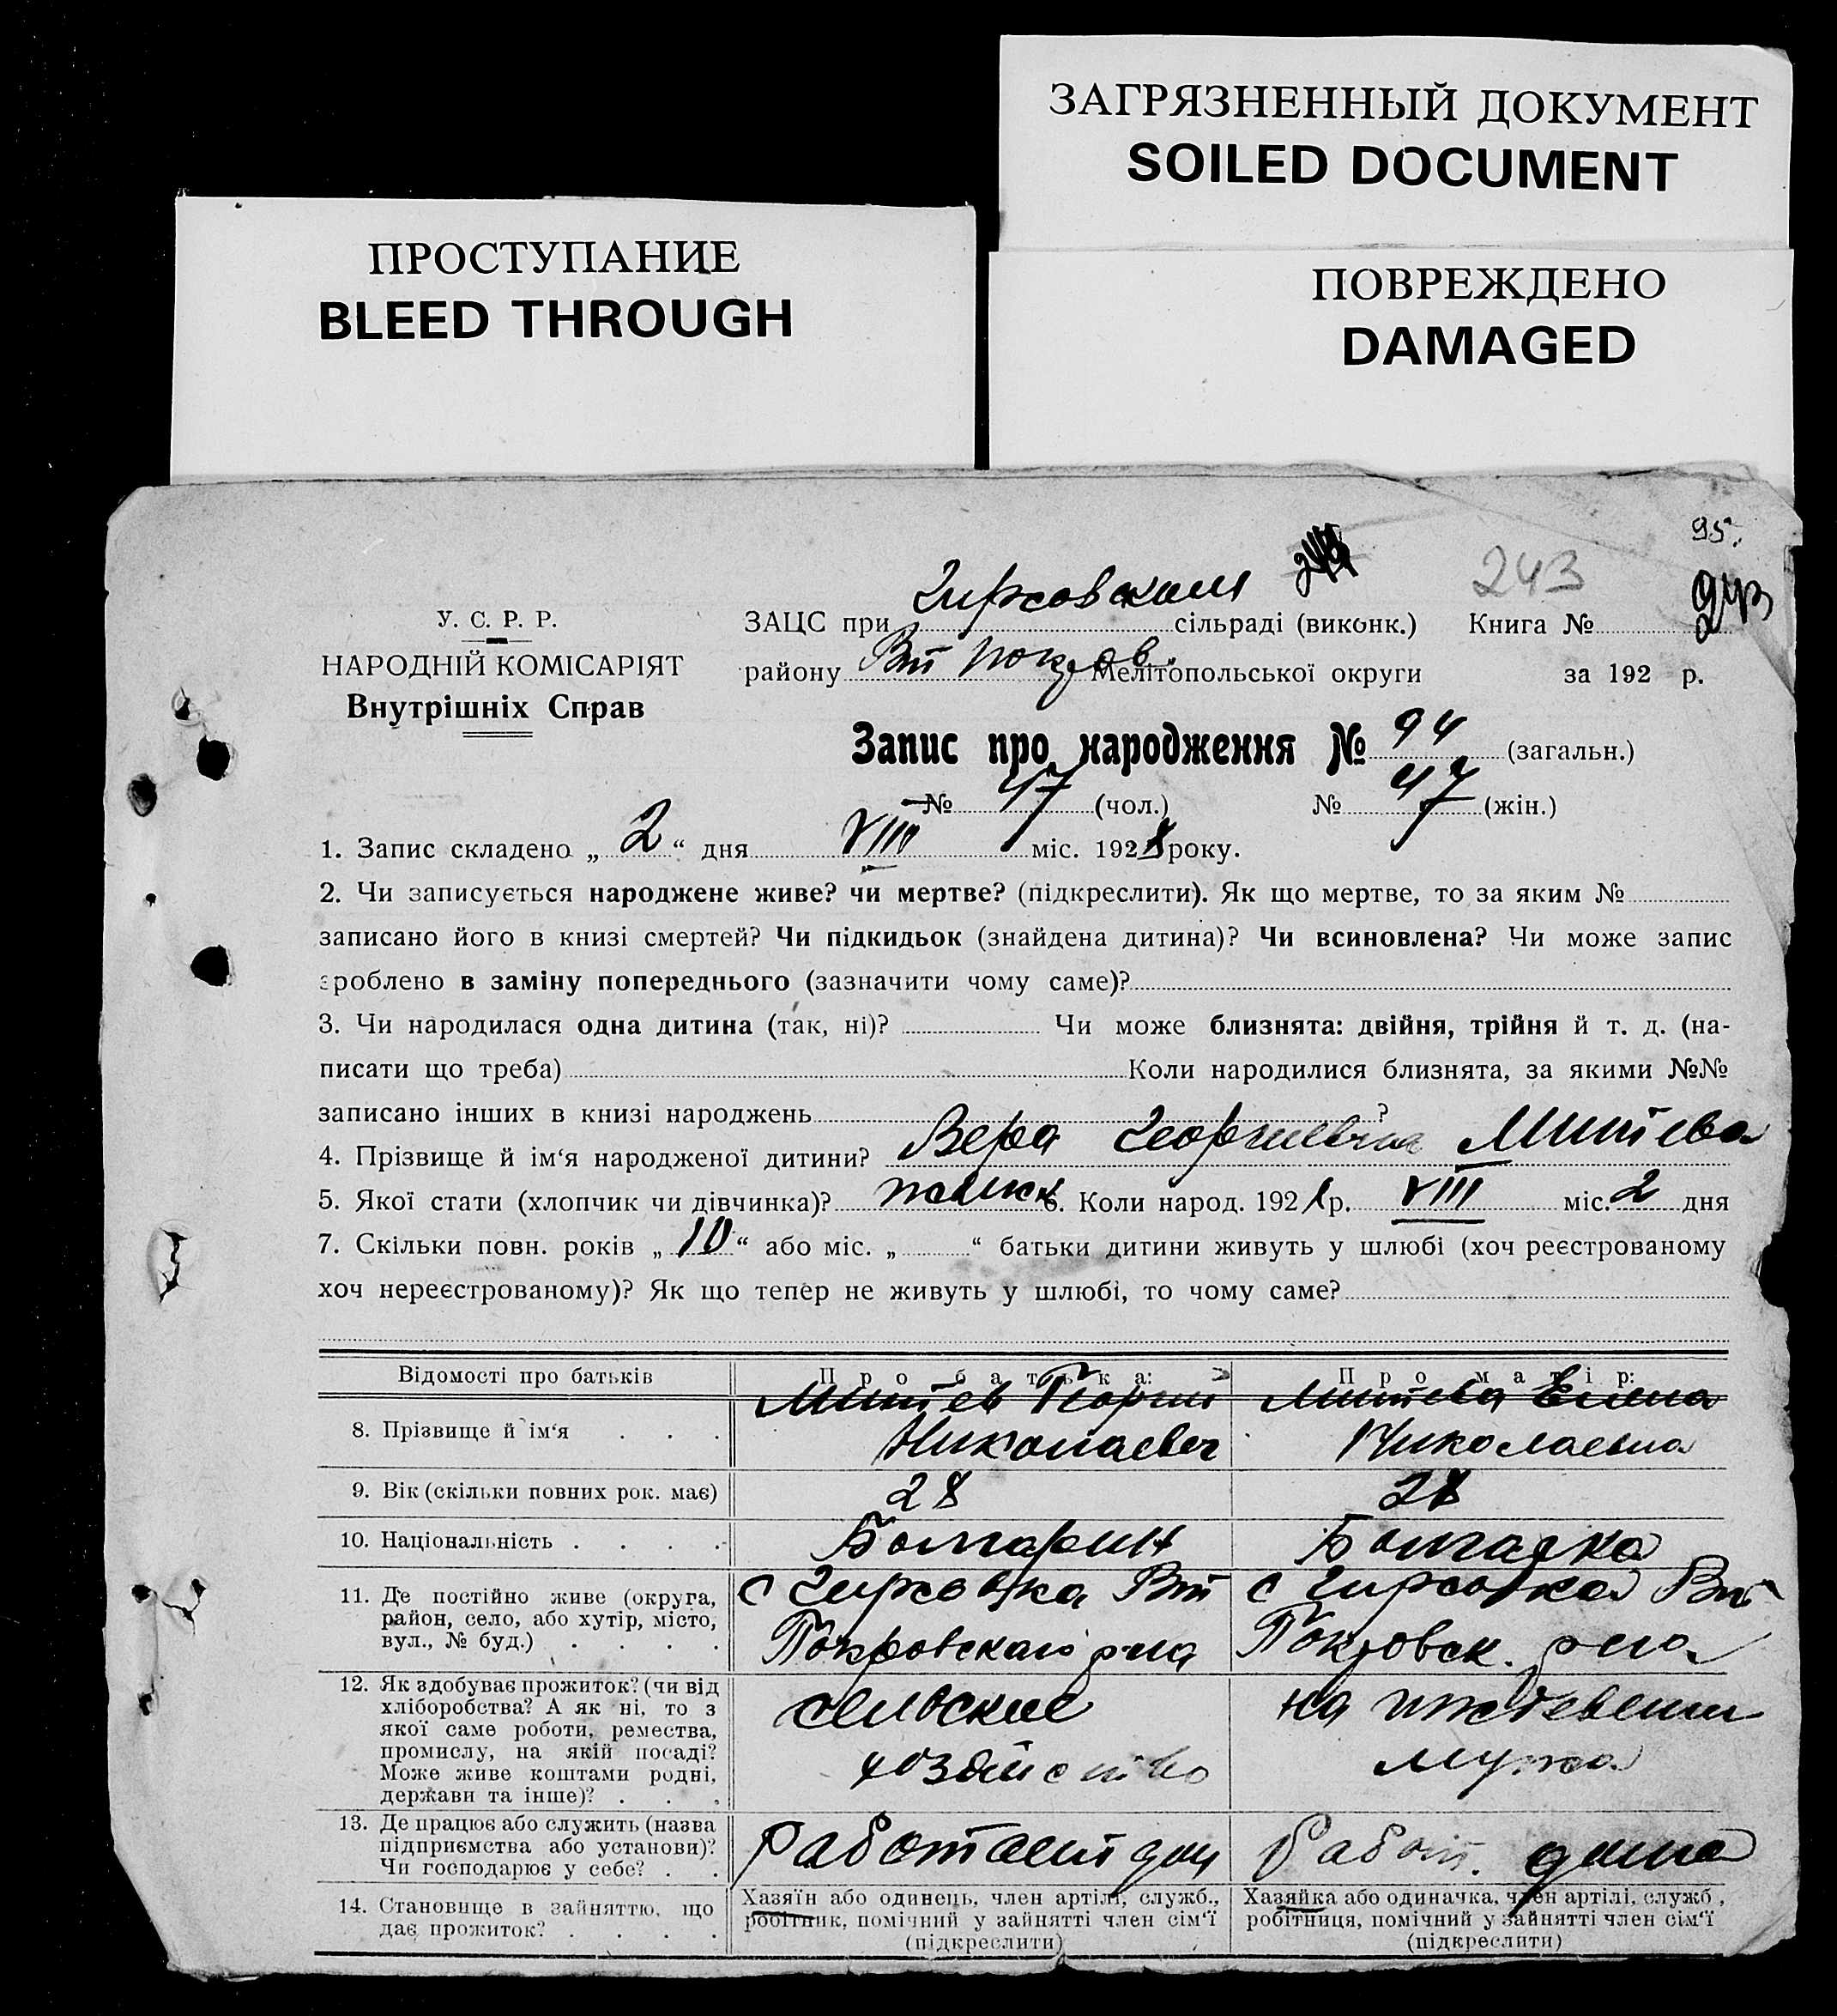 ЗАГРЯЗНЕННЫЙ ДОКУМЕНТ
SOILED DOCUMENT
ПРОСТУПАНИЕ
BLEED THROUGH
ПОВРЕЖДЕНО
DAMAGED
95.
243
243
У. С. Р. Р.
НАРОДНІЙ КОМІСАРІЯТ
Внутрішніх Справ
ЗАЦС при Гирсовском сільраді (виконк.) Книга №
району Вт Покров. Мелітопольської округи за 192 р.
Запис про народження № 94 (загальн.)
№ 47 (чол.) № 47 (жін.)
1. Запис складено „ 2 “ дня VIII міс. 1928 року.
2. Чи записується народжене живе? чи мертве? (підкреслити). Як що мертве, то за яким №
записано його в книзі смертей? Чи підкидьок (знайдена дитина)? Чи всиновлена? Чи може запис
зроблено в заміну попереднього (зазначити чому саме)?
3. Чи народилася одна дитина (так, ні)? Чи може близнята: двійня, трійня й т. д. (на-
писати що треба) Коли народилися близнята, за якими №№
записано інших в книзі народжень ?
4. Прізвище й ім‘я народженої дитини? Вера Георгиевна Митева
5. Якої стати (хлопчик чи дівчинка)? женск 6. Коли народ. 192 р. VIII міс. 2 дня
7. Скільки повн. років „ 10 “ або міс. „ “ батьки дитини живуть у шлюбі (хоч реєстрованому
хоч нереєстрованому)? Як що тепер не живуть у шлюбі, то чому саме?
Відомості про батьків Про батька: Про матір:
8. Прізвище й ім‘я . . . Митев Георгий Николаевич Митева Елена Николаевна
9. Вік (скільки повних рок. має) 28 28
10. Національність . . . . Болгарин Болгарка
11. Де постійно живе (округа,
район, село, або хутір, місто,
вул., № буд.) . . . .
с Гирсовка Вт
Покровского р-на
с Гирсовка Вт
Покровск. р-на
12. Як здобуває прожиток? (чи від
хліборобства? А як ні, то з
якої саме роботи, ремества,
промислу, на якій посаді?
Може живе коштами родні,
держави та інше)? . . .
сельское
хозяйство
на иждевении
мужа
13. Де працює або служить (назва
підприємства або установи)?
Чи господарює у себе? . .
Работает дом
Работ. дома
14. Становище в зайняттю, що
дає прожиток? . . . .
Хазяїн або одинець, член артілі, служб.,
робітник, помічний у зайнятті член сім‘ї
(підкреслити)
Хазяйка або одиначка, член артілі, служб.,
робітниця, помічний у зайнятті член сім‘ї
(підкреслити)